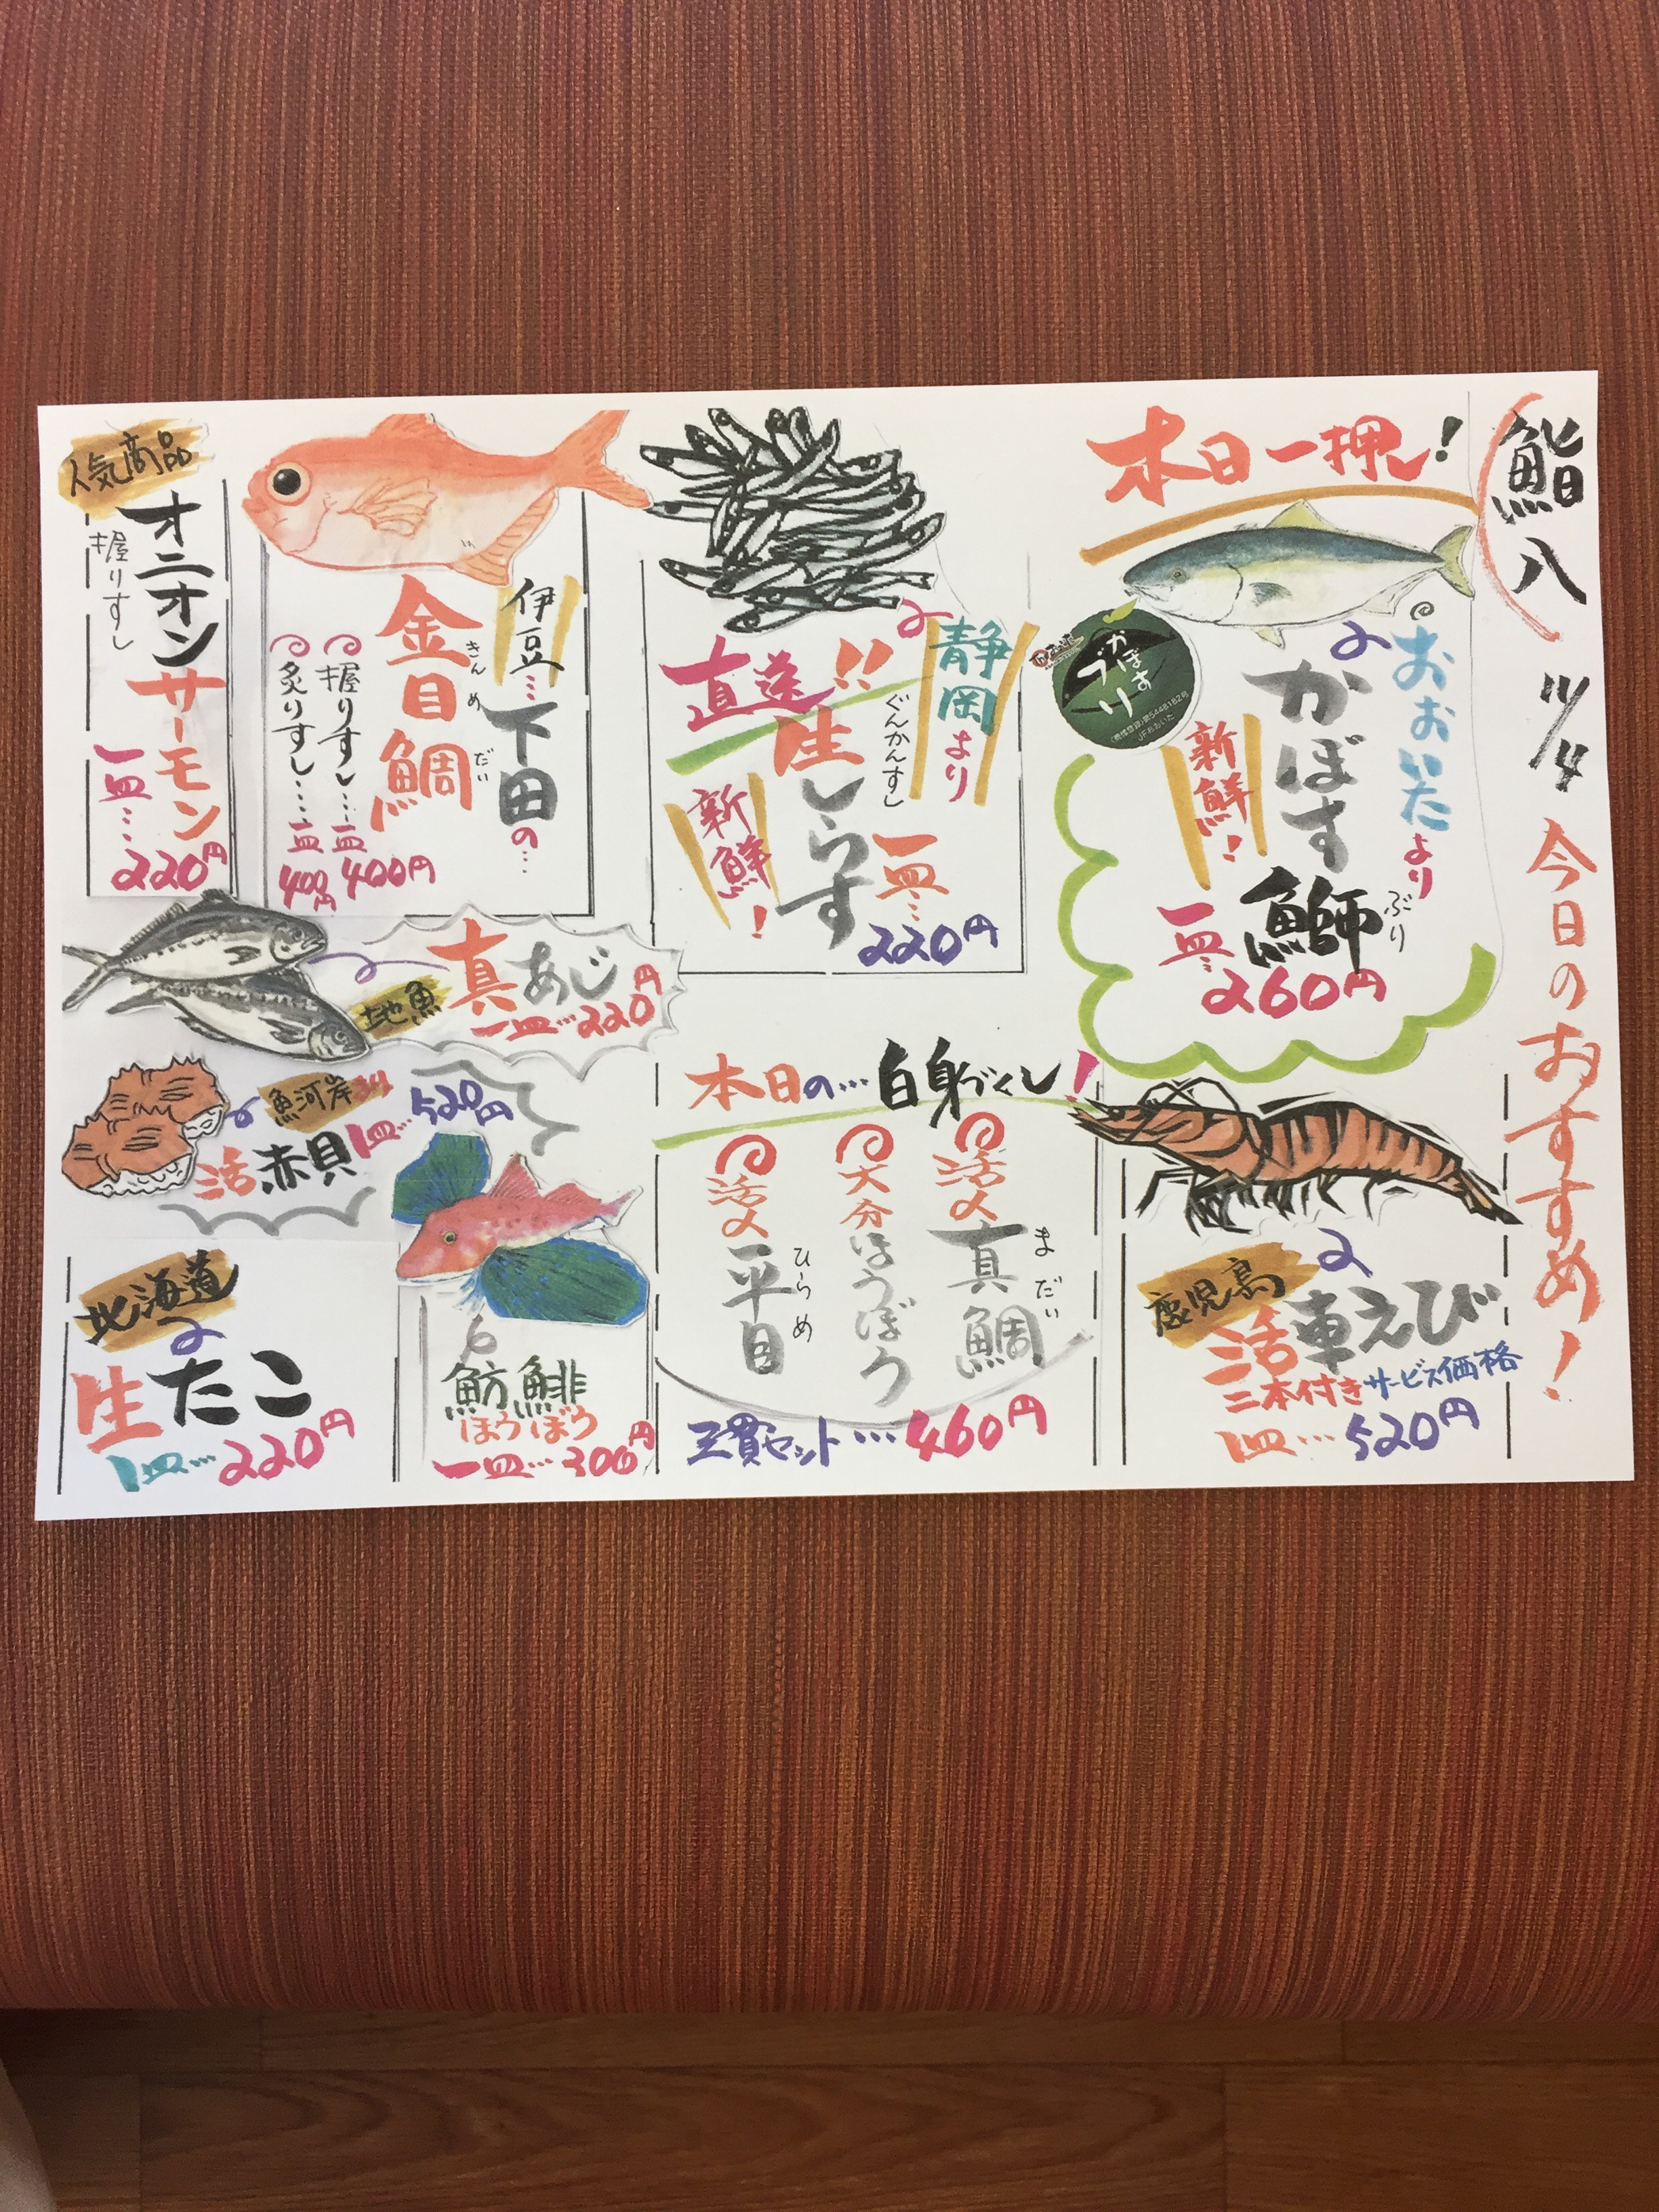 鮨八
11/4
今日のおすすめ!
本日一押し!
おおいたより
かぼす
鰤
ぶり
新鮮!
一皿…
260円
かぼす
ブリ
JFおおいた
静岡より
直送!!
ぐんかんすし
生しらす
新鮮!
一皿…
220円
伊豆…下田の…
金目鯛
きんめだい
握りすし…一皿400円
炙りすし……一皿400円
人気商品
オニオンサーモン
握りすし
一皿…220円
地魚
真あじ
一皿…220円
魚河岸より
活赤貝
1皿…520円
鹿児島
活車えび
二本付きサービス価格
1皿…520円
本日の…白身づくし!
活〆真鯛
まだい
大分ほうぼう
活〆平目
ひらめ
三貫セット…460円
魴鮄
ほうぼう
一皿…300円
北海道
生たこ
1皿…220円